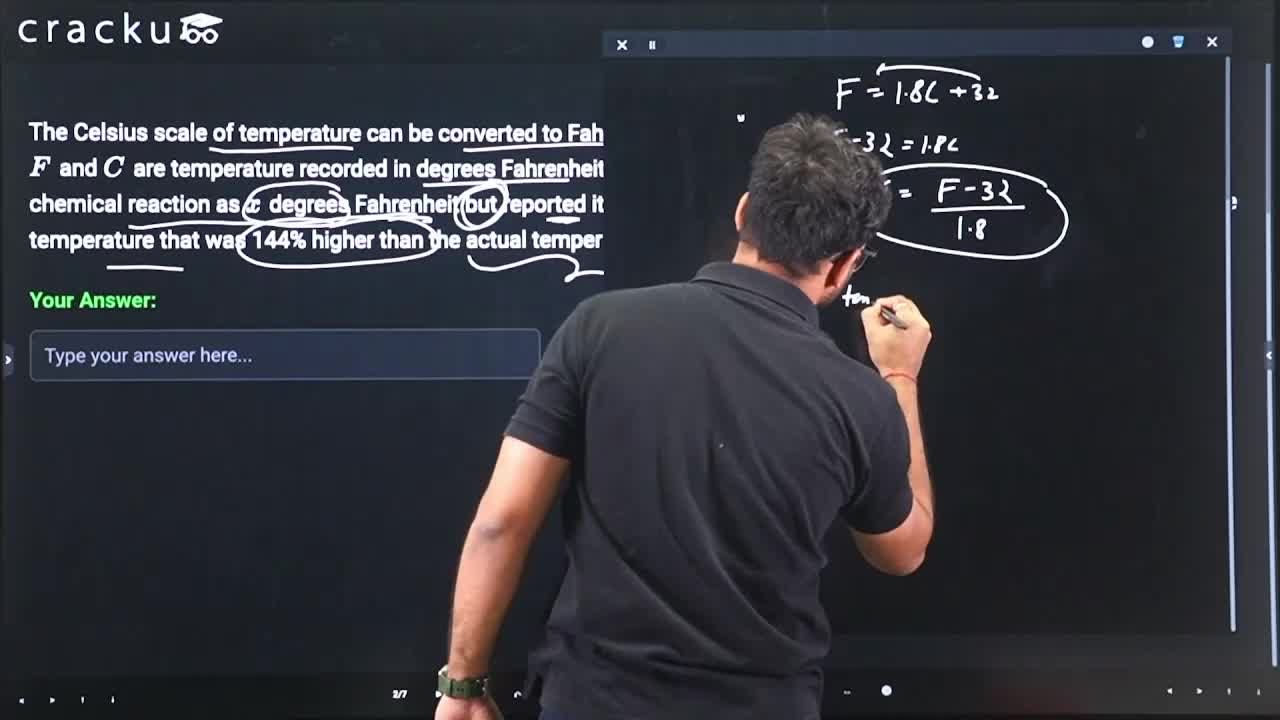 cracku
The Celsius scale of temperature can be converted to Fah
F and C are temperature recorded in degrees Fahrenheit
chemical reaction as x degrees Fahrenheit but reported it
temperature that was 144% higher than the actual temper
Your Answer:
Type your answer here...
F = 1.8C + 32
-32 = 1.8C
= F-32
1.8
2/7